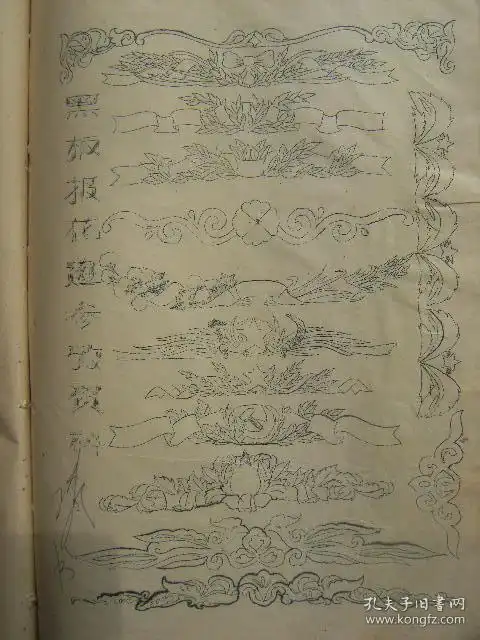 黑板报花边参考资料
孔夫子旧书网
www.kongfz.com